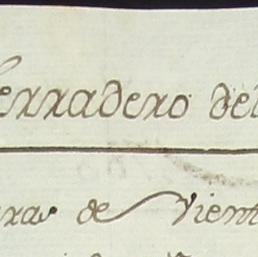 erradero del
ras de Vient